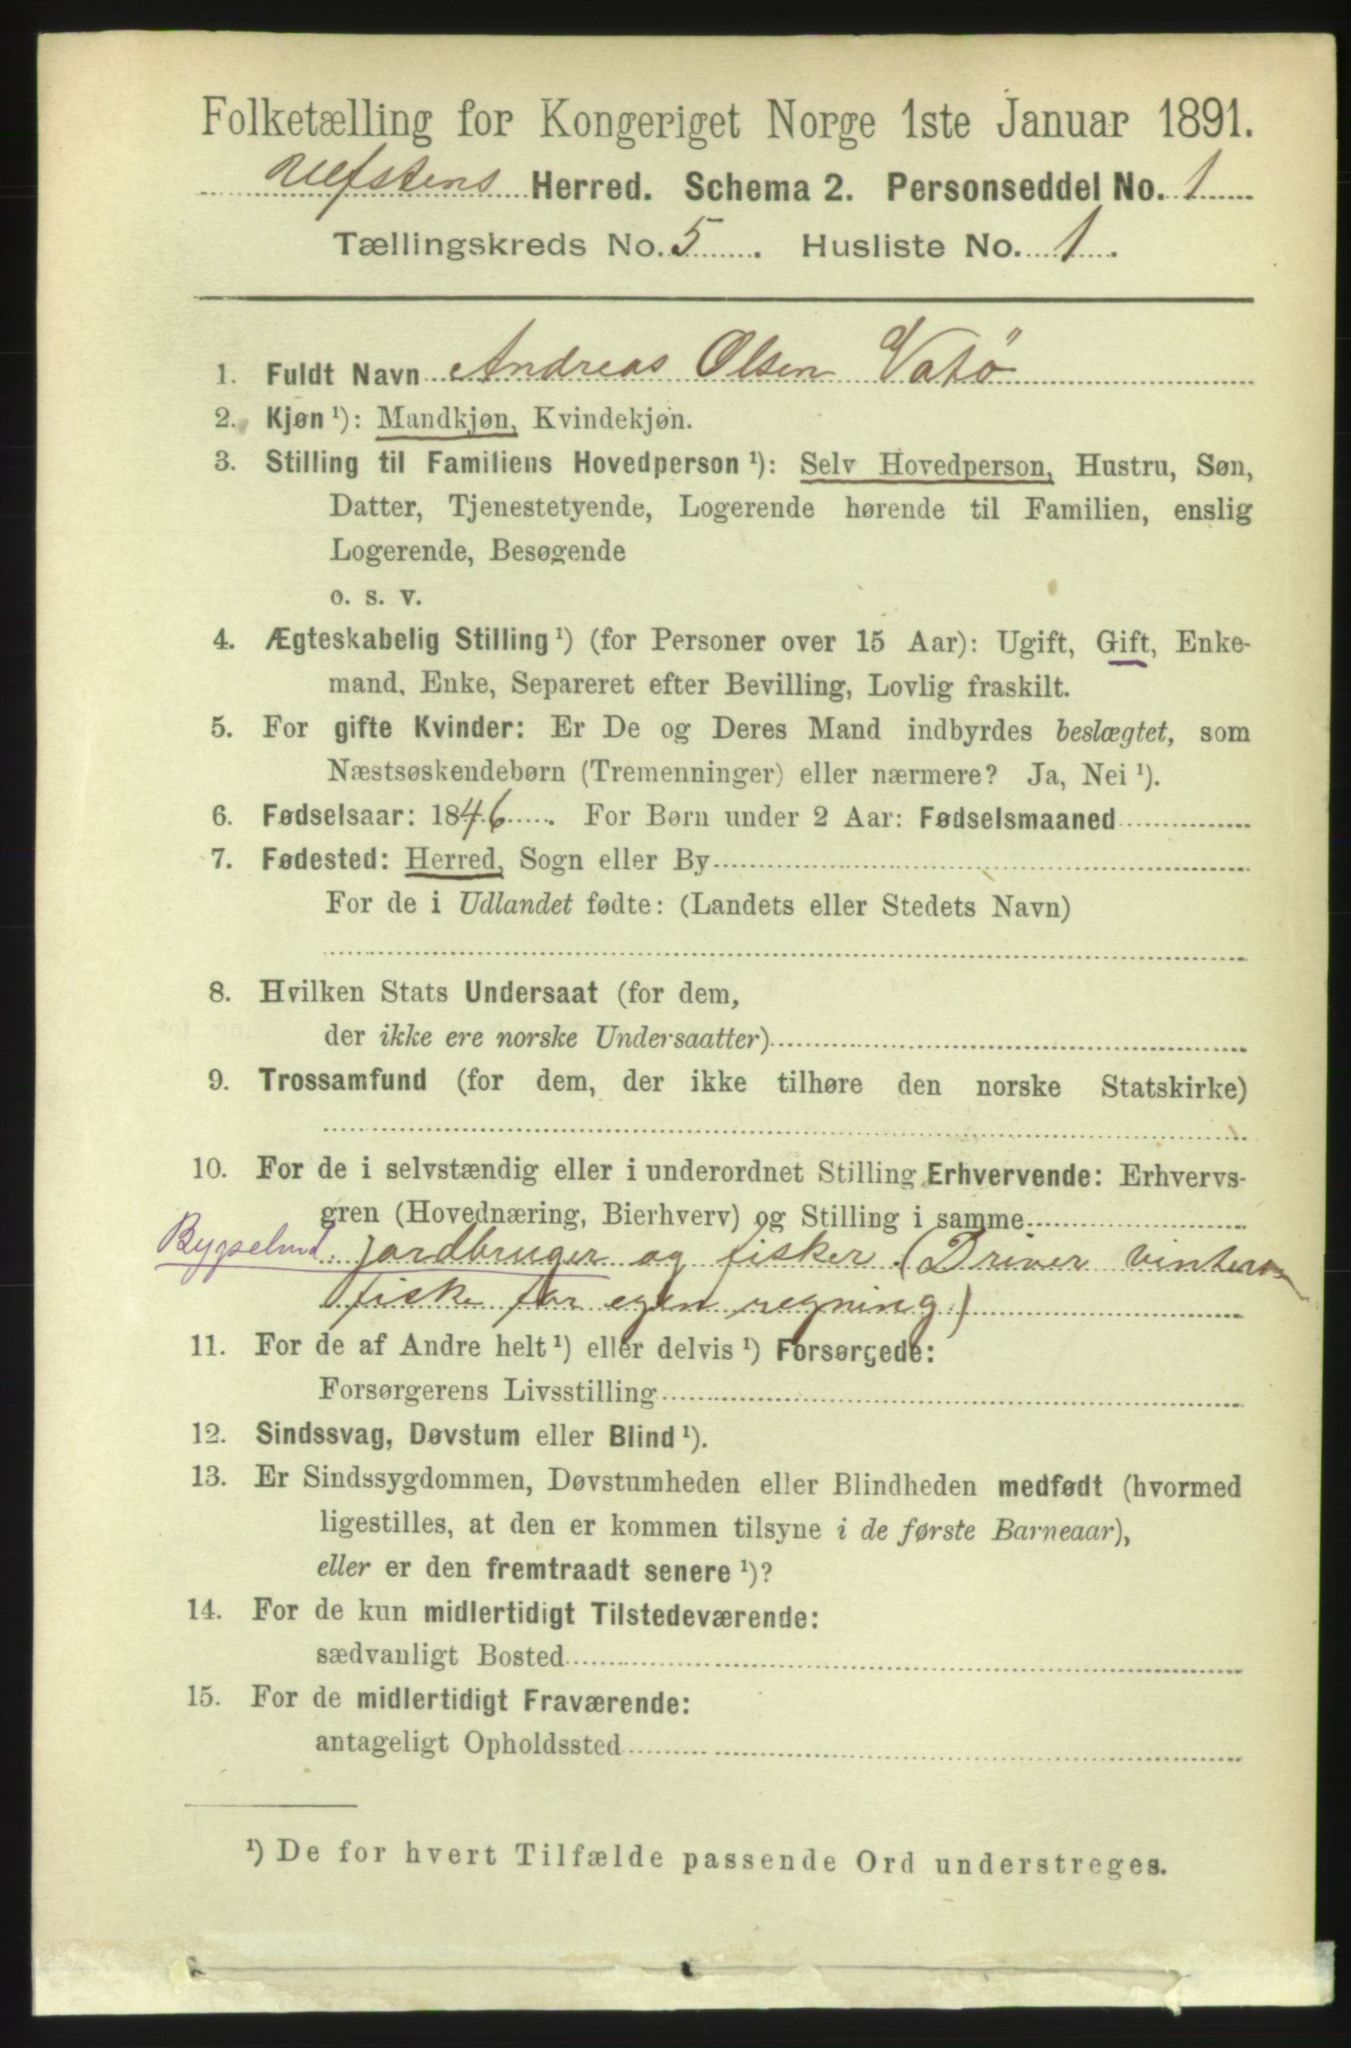 Folketælling for Kongeriget Norge 1ste Januar 1891.
Ulfstens Herred. Schema 2. Personseddel No. 1
Tællingskreds No. 5. Husliste No. 1.
1. Fuldt Navn Andreas Olsen Vatø
2. Kjøn ¹): Mandkjøn, Kvindekjøn.
3. Stilling til Familiens Hovedperson ¹): Selv Hovedperson, Hustru, Søn,
Datter, Tjenestetyende, Logerende hørende til Familien, enslig
Logerende, Besøgende
o. s. v.
4. Ægteskabelig Stilling ¹) (for Personer over 15 Aar): Ugift, Gift, Enke-
mand, Enke, Separeret efter Bevilling, Lovlig fraskilt.
5. For gifte Kvinder: Er De og Deres Mand indbyrdes beslægtet, som
Næstsøskendebørn (Tremenninger) eller nærmere? Ja, Nei ¹).
6. Fødselsaar: 1846. For Børn under 2 Aar: Fødselsmaaned
7. Fødested: Herred, Sogn eller By
For de i Udlandet fødte: (Landets eller Stedets Navn)
8. Hvilken Stats Undersaat (for dem,
der ikke ere norske Undersaatter)
9. Trossamfund (for dem, der ikke tilhøre den norske Statskirke)
10. For de i selvstændig eller i underordnet Stilling Erhvervende: Erhvervs-
gren (Hovednæring, Bierhverv) og Stilling i samme
Bygselmd. jordbruger og fisker. (Driver vinter
fiske for egen regning)
11. For de af Andre helt ¹) eller delvis ¹) Forsørgede:
Forsørgerens Livsstilling
12. Sindssvag, Døvstum eller Blind ¹).
13. Er Sindssygdommen, Døvstumheden eller Blindheden medfødt (hvormed
ligestilles, at den er kommen tilsyne i de første Barneaar),
eller er den fremtraadt senere ¹)?
14. For de kun midlertidigt Tilstedeværende:
sædvanligt Bosted
15. For de midlertidigt Fraværende:
antageligt Opholdssted
¹) De for hvert Tilfælde passende Ord understreges.